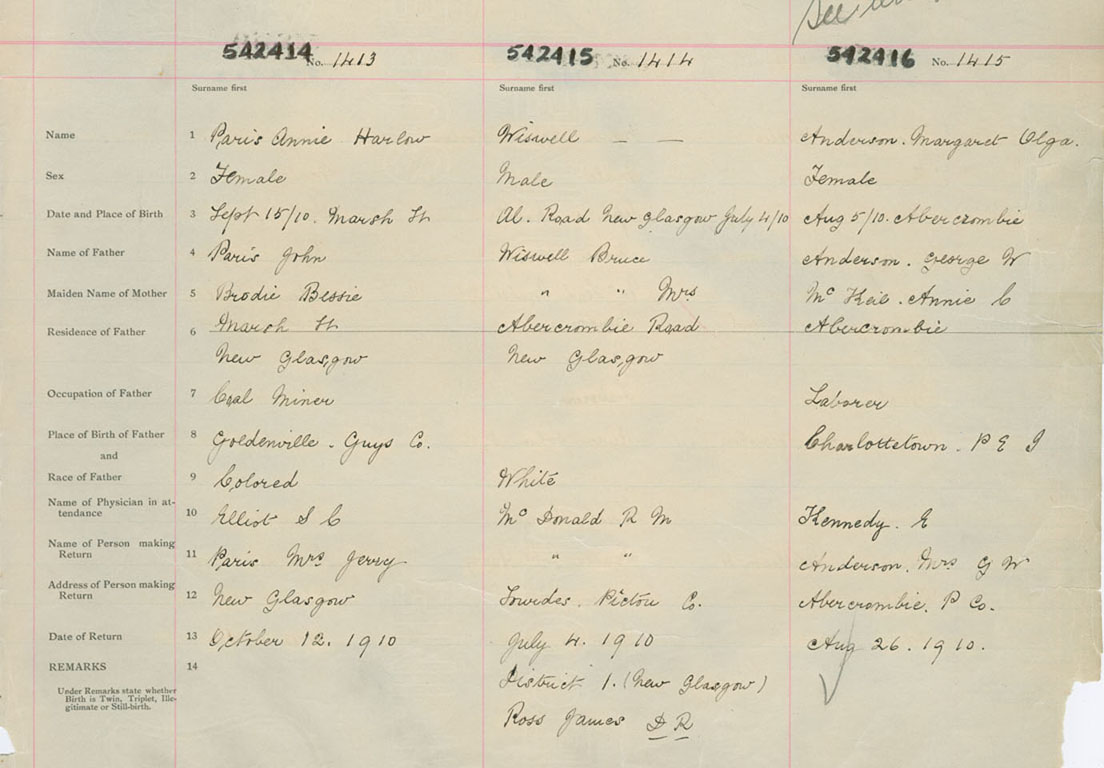 See
542414 No. 1413 542415 No. 1414 542416 No. 1415
Surname first Surname first Surname first
Name 1 Paris Annie Harlow Wiswell — — Anderson. Margaret Olga.
Sex 2 Female Male Female
Date and Place of Birth 3 Sept 15/10. Marsh St Ab. Road New Glasgow July 4/10 Aug 5/10. Abercrombie
Name of Father 4 Paris John Wiswell Bruce Anderson. George W
Maiden Name of Mother 5 Brodie Bessie " " Mrs McKeil. Annie C
Residence of Father 6 Marsh St Abercrombie Road Abercrombie
New Glasgow New Glasgow
Occupation of Father 7 Coal Miner Laborer
Place of Birth of Father 8 Goldenville. Guys Co. Charlottetown. P E I
and
Race of Father 9 Colored White
Name of Physician in at-
tendance 10 Elliot S C McDonald R M Kennedy. E
Name of Person making
Return 11 Paris Mrs Jerry " " Anderson. Mrs G W
Address of Person making
Return 12 New Glasgow Lourdes. Pictou Co. Abercrombie. P Co.
Date of Return 13 October 12. 1910 July 4. 1910 Aug 26. 1910.
REMARKS 14
District 1. (New Glasgow)
Under Remarks state whether
Birth is Twin, Triplet, Ille-
gitimate or Still-birth.
Ross James D R